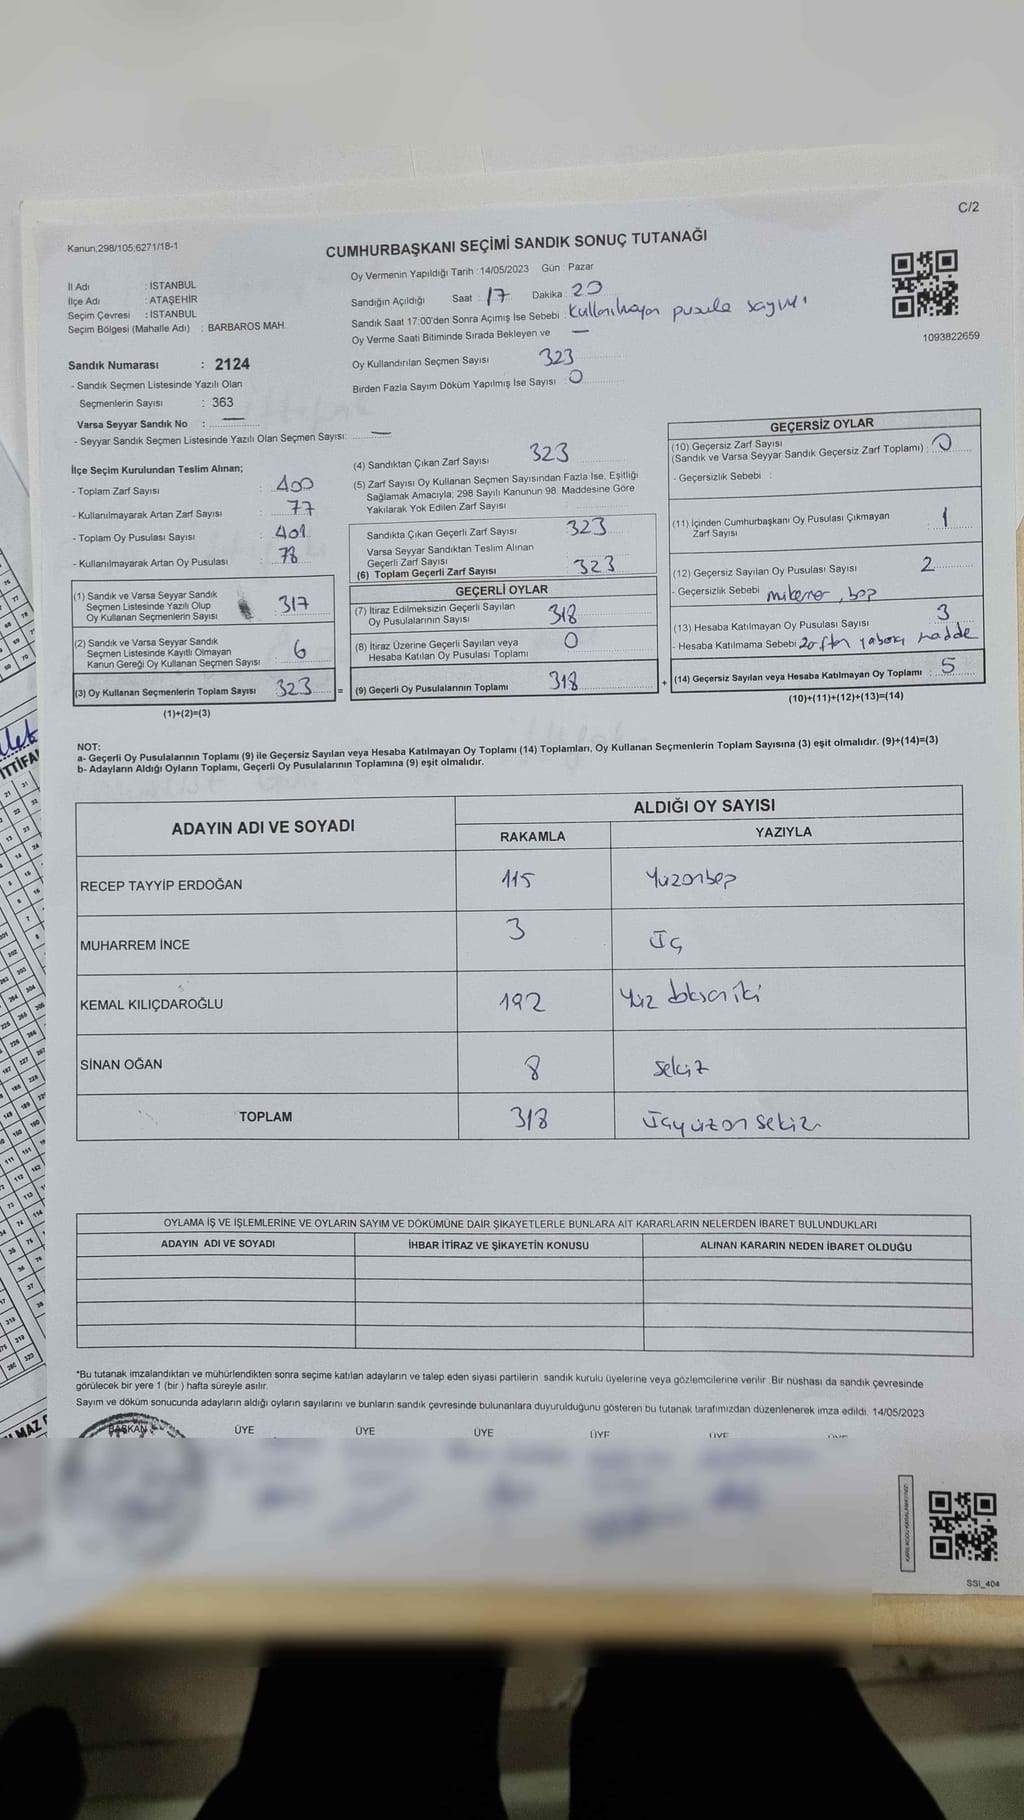 C/2
Kanun;298/105;6271/18-1
CUMHURBAŞKANI SEÇİMİ SANDIK SONUÇ TUTANAĞI
İl Adı : İSTANBUL
İlçe Adı : ATAŞEHİR
Seçim Çevresi : İSTANBUL
Seçim Bölgesi (Mahalle Adı) : BARBAROS MAH.
Oy Vermenin Yapıldığı Tarih : 14/05/2023 Gün : Pazar
Sandığın Açıldığı Saat : 17 Dakika : 20
Sandık Saat 17.00'den Sonra Açımış İse Sebebi : Kullanılmayan pusula sayımı
Oy Verme Saati Bitiminde Sırada Bekleyen ve —
Oy Kullandırılan Seçmen Sayısı 323
Birden Fazla Sayım Döküm Yapılmış İse Sayısı : 0
1093822659
Sandık Numarası : 2124
- Sandık Seçmen Listesinde Yazılı Olan
Seçmenlerin Sayısı : 363
Varsa Seyyar Sandık No : —
- Seyyar Sandık Seçmen Listesinde Yazılı Olan Seçmen Sayısı: —
İlçe Seçim Kurulundan Teslim Alınan;
- Toplam Zarf Sayısı : 400
- Kullanılmayarak Artan Zarf Sayısı : 77
- Toplam Oy Pusulası Sayısı : 401
- Kullanılmayarak Artan Oy Pusulası : 78
(1) Sandık ve Varsa Seyyar Sandık
Seçmen Listesinde Yazılı Olup
Oy Kullanan Seçmenlerin Sayısı : 317
(2) Sandık ve Varsa Seyyar Sandık
Seçmen Listesinde Kayıtlı Olmayan
Kanun Gereği Oy Kullanan Seçmen Sayısı : 6
(3) Oy Kullanan Seçmenlerin Toplam Sayısı 323 =
(1)+(2)=(3)
(4) Sandıktan Çıkan Zarf Sayısı 323
(5) Zarf Sayısı Oy Kullanan Seçmen Sayısından Fazla İse, Eşitliği
Sağlamak Amacıyla; 298 Sayılı Kanunun 98. Maddesine Göre
Yakılarak Yok Edilen Zarf Sayısı
Sandıkta Çıkan Geçerli Zarf Sayısı 323
Varsa Seyyar Sandıktan Teslim Alınan
Geçerli Zarf Sayısı
(6) Toplam Geçerli Zarf Sayısı 323
GEÇERLİ OYLAR
(7) İtiraz Edilmeksizin Geçerli Sayılan
Oy Pusulalarının Sayısı 318
(8) İtiraz Üzerine Geçerli Sayılan veya
Hesaba Katılan Oy Pusulası Toplamı 0
(9) Geçerli Oy Pusulalarının Toplamı 318 +
GEÇERSİZ OYLAR
(10) Geçersiz Zarf Sayısı
(Sandık ve Varsa Seyyar Sandık Geçersiz Zarf Toplamı) : 0
- Geçersizlik Sebebi :
(11) İçinden Cumhurbaşkanı Oy Pusulası Çıkmayan
Zarf Sayısı 1
(12) Geçersiz Sayılan Oy Pusulası Sayısı 2
- Geçersizlik Sebebi mükerrer, boş
(13) Hesaba Katılmayan Oy Pusulası Sayısı : 3
- Hesaba Katılmama Sebebi zarftan yabancı madde
(14) Geçersiz Sayılan veya Hesaba Katılmayan Oy Toplamı : 5
(10)+(11)+(12)+(13)=(14)
NOT:
a- Geçerli Oy Pusulalarının Toplamı (9) ile Geçersiz Sayılan veya Hesaba Katılmayan Oy Toplamı (14) Toplamları, Oy Kullanan Seçmenlerin Toplam Sayısına (3) eşit olmalıdır. (9)+(14)=(3)
b- Adayların Aldığı Oyların Toplamı, Geçerli Oy Pusulalarının Toplamına (9) eşit olmalıdır.
ADAYIN ADI VE SOYADI
ALDIĞI OY SAYISI
RAKAMLA YAZIYLA
RECEP TAYYİP ERDOĞAN 115 Yüzonbeş
MUHARREM İNCE 3 Üç
KEMAL KILIÇDAROĞLU 192 Yüz doksan iki
SİNAN OĞAN 8 Sekiz
TOPLAM 318 Üçyüzon sekiz
OYLAMA İŞ VE İŞLEMLERİNE VE OYLARIN SAYIM VE DÖKÜMÜNE DAİR ŞİKAYETLERLE BUNLARA AİT KARARLARIN NELERDEN İBARET BULUNDUKLARI
ADAYIN ADI VE SOYADI İHBAR İTİRAZ VE ŞİKAYETİN KONUSU ALINAN KARARIN NEDEN İBARET OLDUĞU
*Bu tutanak imzalandıktan ve mühürlendikten sonra seçime katılan adayların ve talep eden siyasi partilerin sandık kurulu üyelerine veya gözlemcilerine verilir. Bir nüshası da sandık çevresinde
görülecek bir yere 1 (bir) hafta süreyle asılır.
Sayım ve döküm sonucunda adayların aldığı oyların sayılarını ve bunların sandık çevresinde bulunanlara duyurulduğunu gösteren bu tutanak tarafımızdan düzenlenerek imza edildi. 14/05/2023
BAŞKAN ÜYE ÜYE ÜYE ÜYE ÜYE
SSİ_404